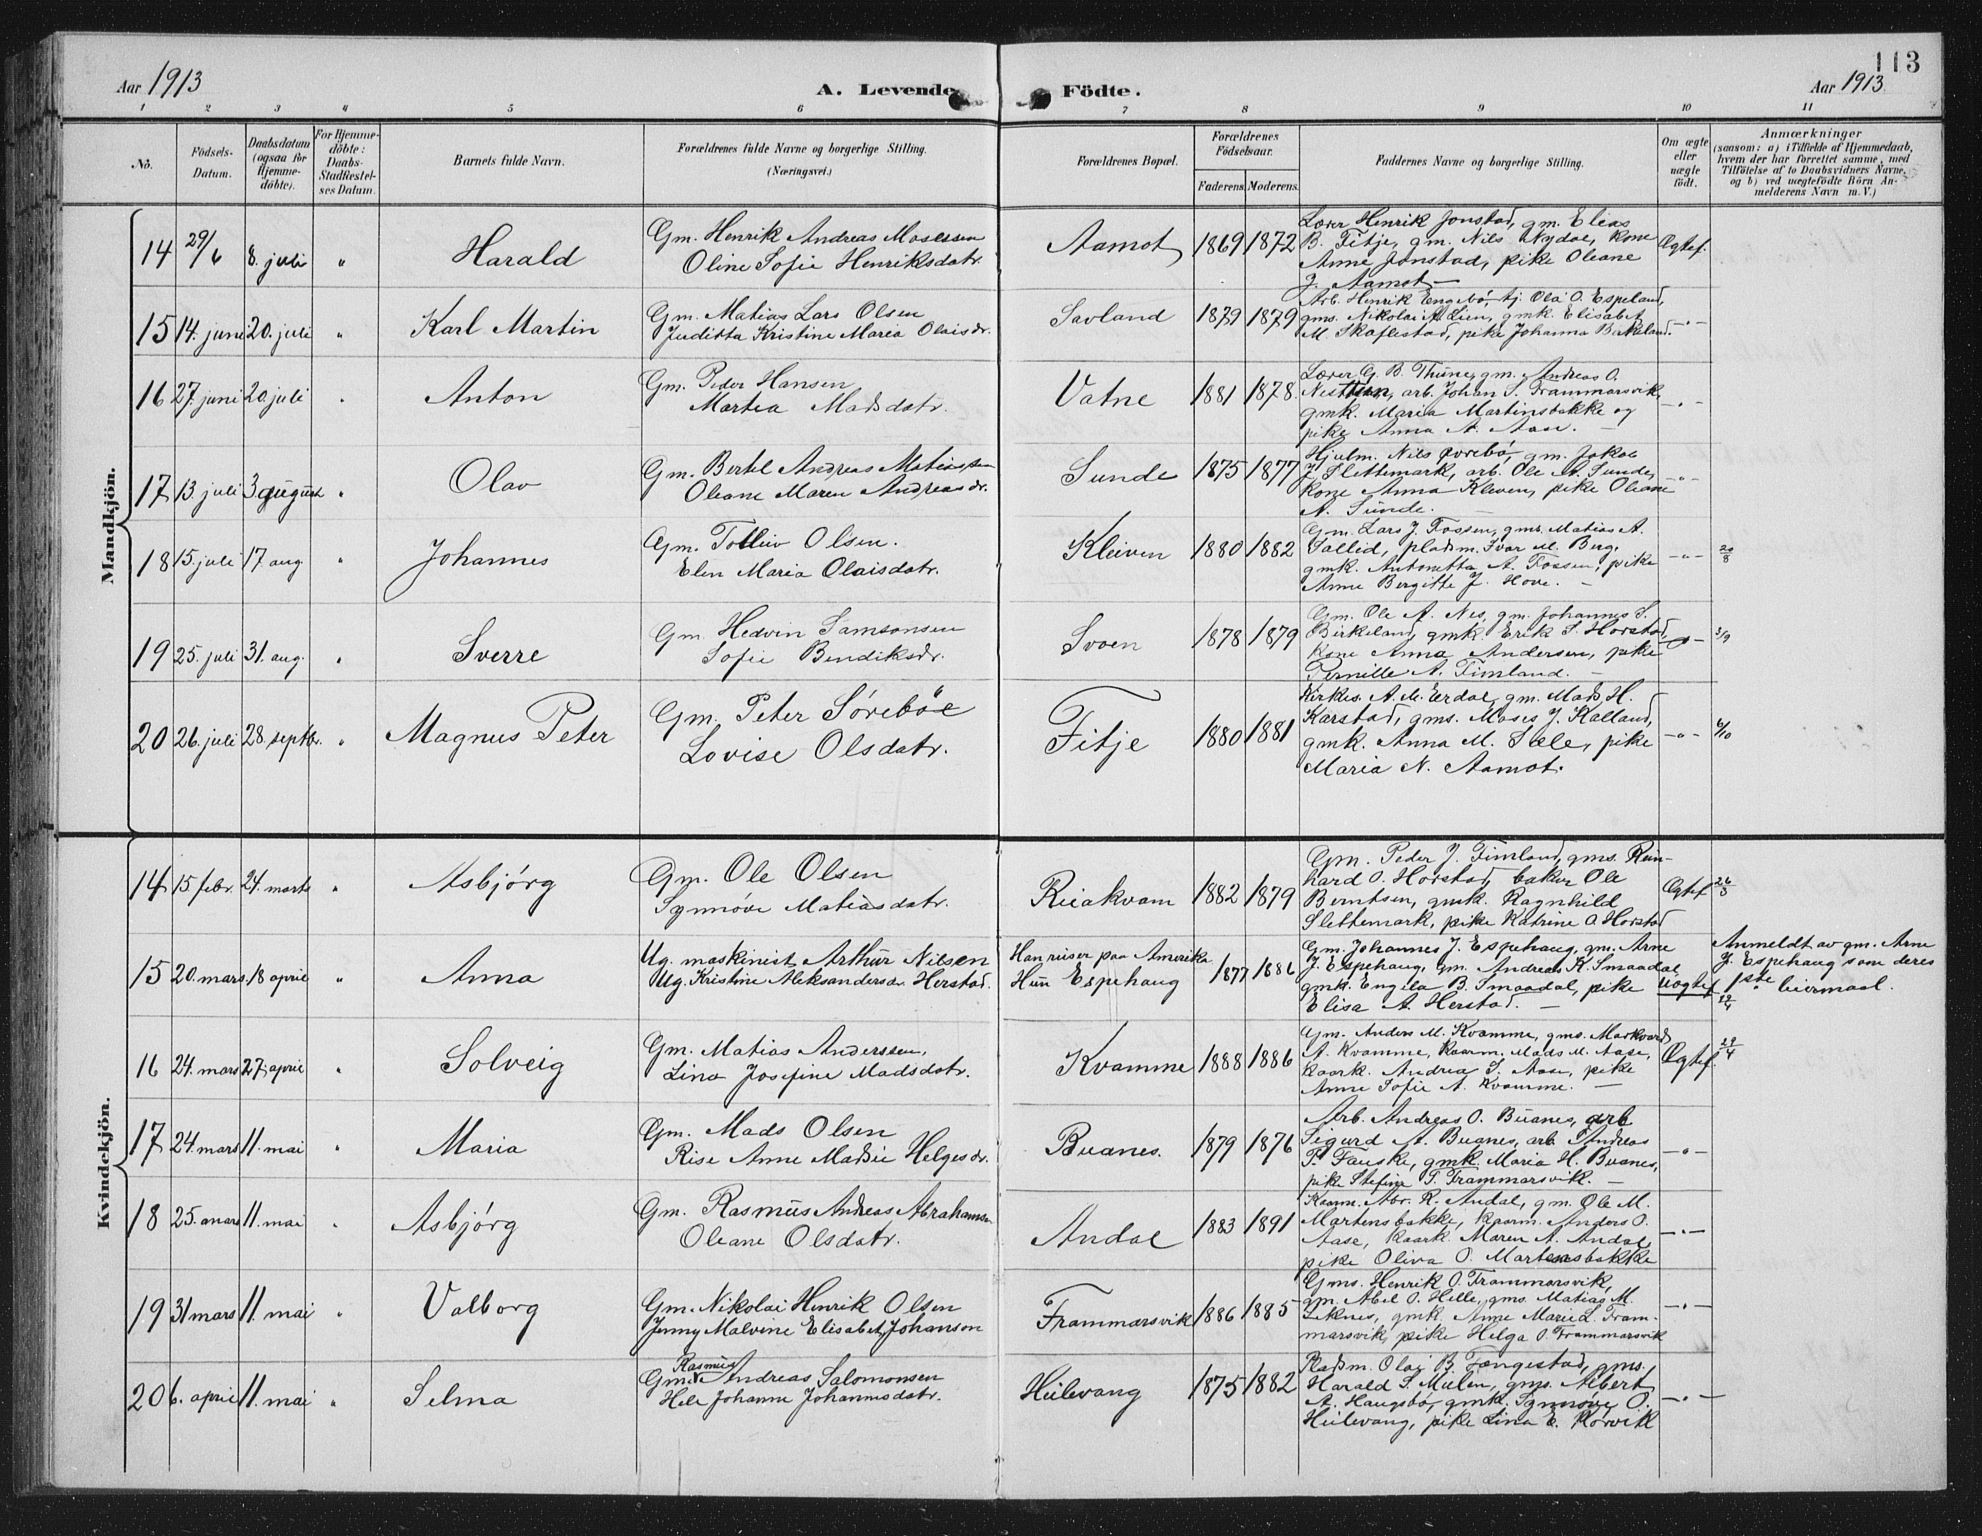 113
Aar 1913
A. Levende
Födte.
Aar 1913
1 2 3 4 5 6 7 8 9 10 11
No.
Födsels-
Datum.
Daabsdatum
(ogsaa for
Hjemme-
döbte).
For Hjemme-
döbte:
Daabs-
Stadfæstel-
ses Datum.
Barnets fulde Navn.
Forældrenes fulde Navne og borgerlige Stilling.
(Næringsvei.)
Forældrenes Bopæl.
Forældrenes
Födselsaar.
Faderens. Moderens.
Faddernes Navne og borgerlige Stilling.
Om ægte
eller
uægte
födt.
Anmærkninger
(saasom: a) i Tilfælde af Hjemmedaab,
hvem der har forrettet samme, med
Tilföielse af to Daabsvidners Navne,
og b) ved uægtefödte Börn An-
melderens Navn m. V.)
Mandkjön.
14 29/6 8. juli " Harald
Gm. Henrik Andreas Mosessen
Oline Sofie Henriksdatr.
Aamot 1869 1872
Lærer Henrik Jonstad, gm. Elias
B. Fitje, gm. Nils Nydal, kone
Anne Jonstad, pike Oleane
J. Aamot —
Ægtef.
15 14. juni 20. juli " Karl Martin
Gm. Matias Lars Olsen
Juditta Kristine Maria Olaisdr.
Savland 1879 1879
Arb. Henrik Engebø, Aj. Ola O. Espeland,
gms. Nikolai A. Lien, gmk. Elisabet
M. Skaflestad, pike Johanna Birkeland.
—"—
16 27. juni 20. juli " Anton
Gm. Peder Hansen
Martea Madsdatr.
Vatne 1881 1878
Lærer G. B. Thune, gm. Andreas O.
arb. Johan S. Frammarsvik,
gmk. Maria Martinsbakke og
pike Anna A. Aase. —
—"—
17 13. juli 3 august " Olav
Gm. Bertel Andreas Matiassen
Oleane Maren Andreasdr.
Sunde 1875 1877
Hjulm. Nils gm. Jakob
J. Slettemark, arb. Ole A. Sunde,
kone Anna Kleven, pike Oleane
A. Sunde. —
—"—
18 15. juli 17 aug " Johannes
Gm. Tolleiv Olsen.
Elen Maria Olaisdatr.
Kleiven 1880 1882
Gm. Lars J. Fossen, gms. Matias A.
Sallid, pladsm. Ivar M. Berg,
gmk. Antonetta A. Fossen, pike
Anne Bergitte J. Hove. —
—"— 20/8
19 25. juli 31. aug. " Sverre
Gm. Hedvin Samsonsen
Sofie Bendiksdr.
Svoen 1878 1879
Gm. Ole A. Nes, gm. Johannes S.
Birkeland, gmk. Erik S. Horstad,
kone Anna Andersen, pike
Pernille A. Timland. —
—"— 3/9
20 26. juli 28. septbr. " Magnus Peter
Gm. Peter Sørebøe
Lovise Olsdatr.
Fitje 1880 1881
Kirkes. A. M. Eerdal, gm. Mads H.
Karstad, gms. Moses J. Kalland,
gmk. Anna M. Sele, pike
Maria N. Aamot.
—"— 6/10
Kvindekjön.
14 15 febr. 24. marts " Asbjørg
Gm. Ole Olsen
Synnøve Matiasdatr.
Reiakvam 1882 1879
Gm. Peder J. Timland, gms. Rein-
hard O. Horstad, baker Ole
Berntsen, gmk. Ragnhild
Slettemark, pike Katrine O. Horstad
Ægtef. 26/3
15 20. mars 18 april " Anna
Ug. maskinist Arthur Nilsen
Ug. Kristine Aleksandersdr. Herstad.
Han reiser paa Amerika
Hun Espehaug 1877 1886
Gm. Johannes J. Espehaug, gm. Arne
J. Espehaug, gm. Andreas K. Smaadal,
gmk. Engela B. Smaadal, pike
Elisa A. Herstad. —
Uægtef.
Anmeldt av gm. Arne
J. Espehaug som deres
1ste leiermaal.
16 24. mars 27. april " Solveig
Gm. Matias Anderssen,
Lina Josefine Madsdatr.
Kvamme 1888 1886
Gm. Anders M. Kvamme, gms. Markvard
A. Kvamme, kaarm. Mads M. Aase,
kaark. Andrea S. Aase, pike
Anne Sofie A. Kvamme. —
Ægtef. 29/4
17 24. mars 11. mai " Maria
Gm. Mads Olsen
Rise Anne Madsie Helgesdr.
Buanes. 1879 1876
Arb. Andreas O. Buanes, arb
Sigurd A. Buanes, arb. Andreas
P. Fauske, gmk. Maria H. Buanes,
pike Stefine S. Frammarsvik. —
—"—
18 25. mars 11. mai " Asbjørg
Gm. Rasmus Andreas Abrahamsen
Oleane Olsdatr.
Andal 1883 1891
Kaarm. Abr. R. Andal, gm. Ole M.
Martensbakke, kaarm. Anders O.
Aase, kaark. Maren A. Andal,
pike Oliva O. Martensbakke
—"—
19 31 mars 11. mai " Valborg
Gm. Nikolai Henrik Olsen
Jenny Malvine Elisabet Johanson
Frammarsvik 1886 1885
Gms. Henrik O. Frammarsvik,
gm. Abel O. Helle, gms. Matias M.
Liknes, gmk. Anne Marie L. Fram-
marsvik, pike Helga O. Frammarsvik
—"—
20 6. april 11. mai " Selma
Rasmus
Gm. Andreas Salomonsen
Hele Johanne Johannesdatr.
Heilevang 1875 1882
Pladsm. Olai B. Fængestad, gms.
Harald S. Mulen, gms. Albert
A. Haugsbø, gmk. Synnøve O.
Heilevang, pike Lina E. Kørvik
—"—